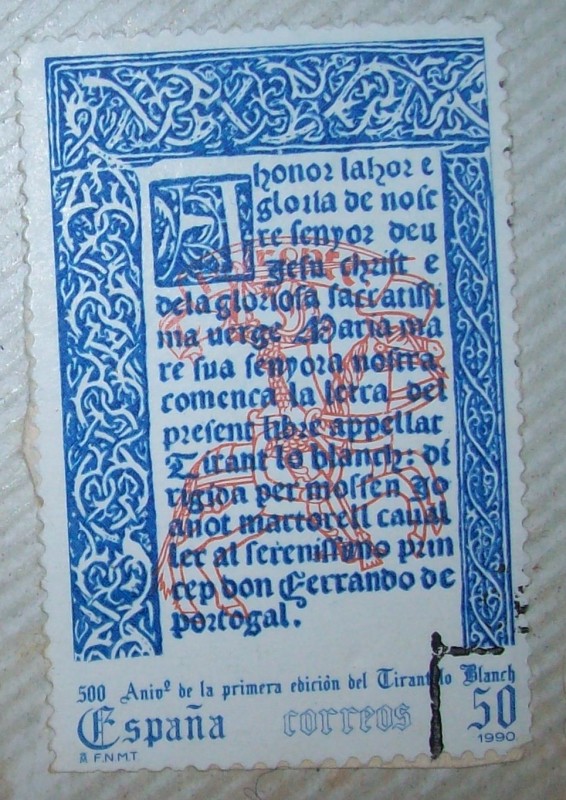 A honor lahor e
gloria de nost
re senyor deu
Jesu christ e
dela gloriosa sacratissi
ma uerge Maria ma
re sua senyora nostra.
comença la letra del
present libre appellat
Tirant lo blanch: di
rigida per mossen Jo
anot martorell caual
ler al serenissimo prin
cep don Ferrando de
portogal.
500 Anivº de la primera edición del Tirant lo Blanch
España correos 50
F.N.M.T. 1990